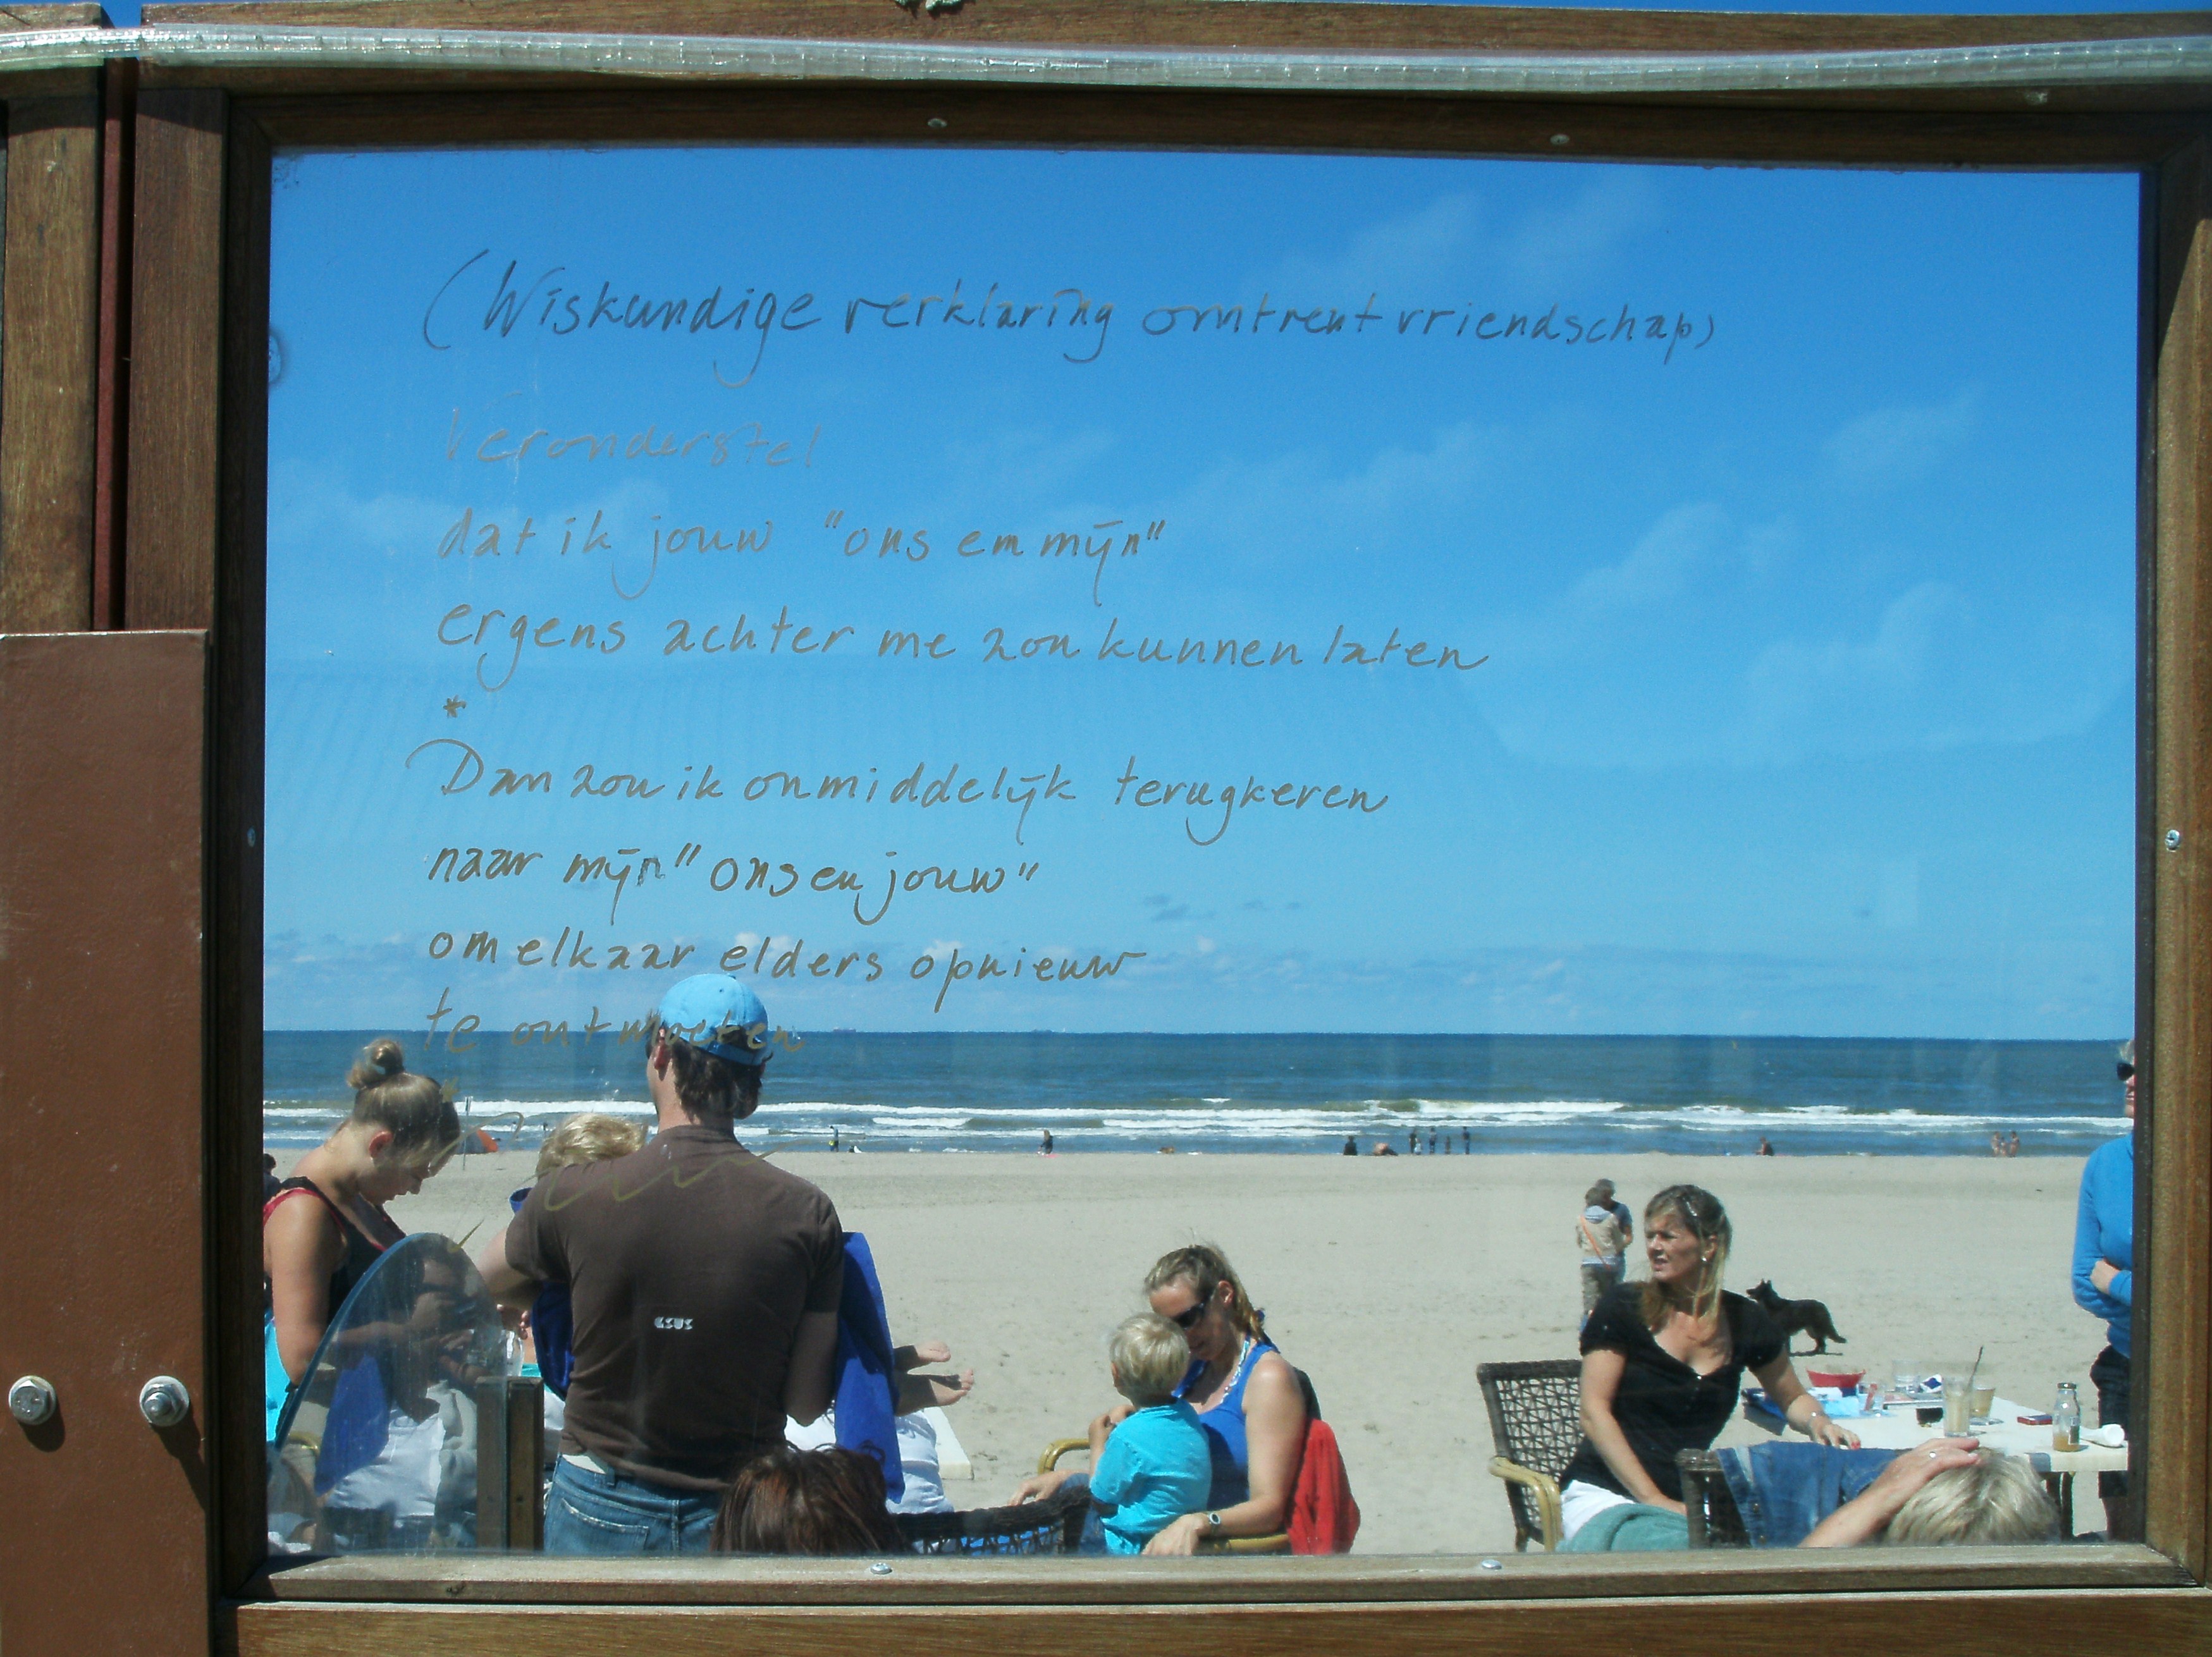 (Wiskundige verklaring omtrent vriendschap)
Veronderstel
dat ik jouw "ons en mijn"
ergens achter me zou kunnen laten
*
Dan zou ik onmiddelijk terugkeren
naar mijn "ons en jouw"
om elkaar elders opnieuw
te ontmoeten
asus